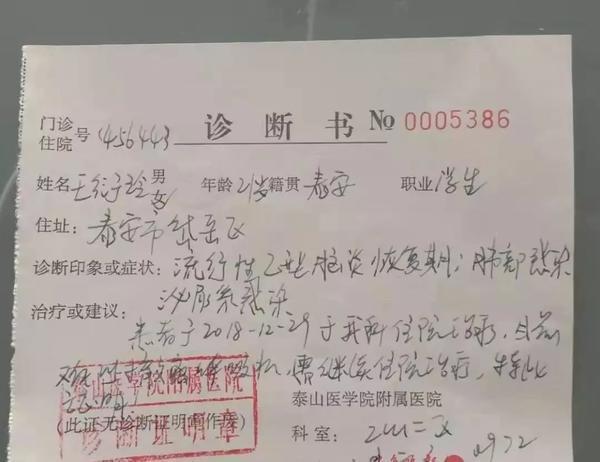 门诊
住院 号 456443 诊断书 № 0005386
姓名 王衍玲 男 女 年龄 21岁 籍贯 泰安 职业 学生
住址: 泰安市岱岳区
诊断印象或症状: 流行性乙型脑炎恢复期; 肺部感染
泌尿系感染
治疗或建议:
患者于2018-12-29于我科住院治疗, 目前
呼吸机, 需继续住院治疗, 特此
证明
泰山医学院附属医院
诊断证明章
(此证无诊断证明章作废)
泰山医学院附属医院
科室: